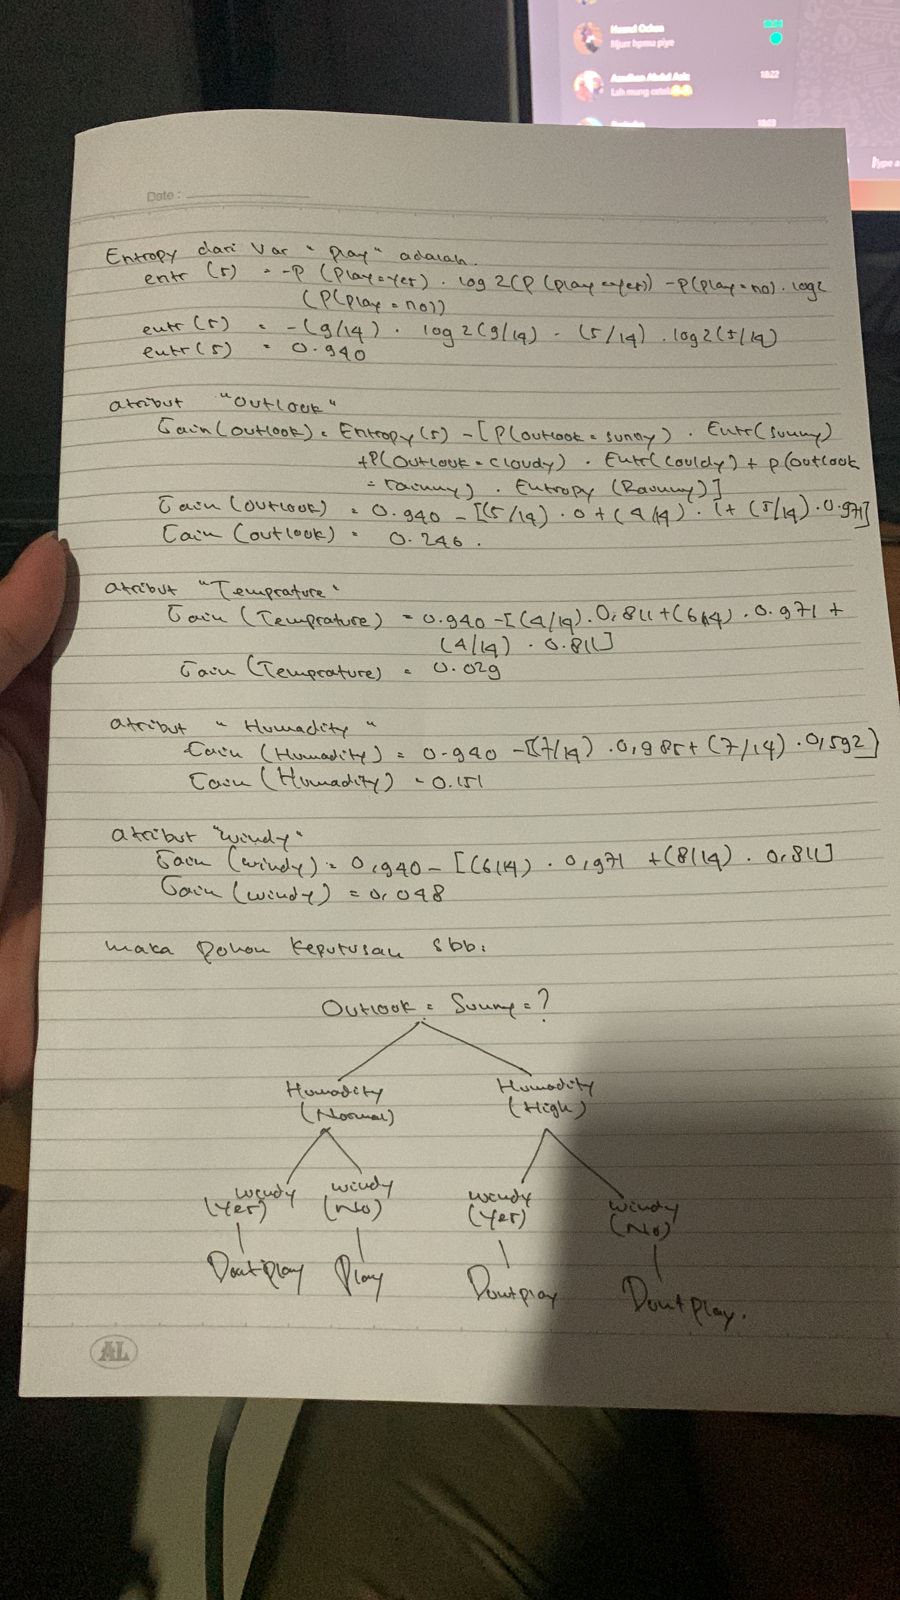 Hamid Ochen
Njurr hpmu piye
Azadhan Abdul Aziz
18:22
Lah mung cetak😂😂
18:03
Type a
Date :
Entropy dari Var " Play" adalah.
entr (s) = -P (Play=yes) . log 2(P (play=yes)) -P(play=no). log2
(P(play = no))
entr(s) = -(9/14) . log2(9/14) - (5/14) .log2(5/14)
entr(s) = 0.940
atribut "Outlook"
Gain(outlook) = Entropy(s) -[P(outlook = sunny) . Entr(sunny)
+P(Outlook=cloudy) . Entr(couldy) + p(outlook
=rainny) . Entropy (Rainny)]
Gain (outlook) = 0.940 - [(5/14) . 0 + (4/14) . 1+ (5/14).0.971]
Gain (outlook) = 0.246.
atribut "Temprature"
Gain (Temprature) = 0.940 -[(4/14).0,811+(6/14).0.971+
(4/14) . 0.811]
Gain (Temprature) = 0.029
atribut " Humadity "
Gain (Humadity) = 0.940 -[(7/14) .0,985+(7/14).0,592]
Gain (Humadity) =0.151
atribut "windy"
Gain (windy) = 0,940- [(6/14) . 0,971 +(8/14). 0,811]
Gain (windy) = 0,048
maka Pohon Keputusan sbb:
Outlook = Sunny = ?
Humadity Humadity
(Normal) (High)
windy windy windy windy
(Yes) (No) (Yes) (No)
Dontplay Play Dontplay Dontplay.
AL